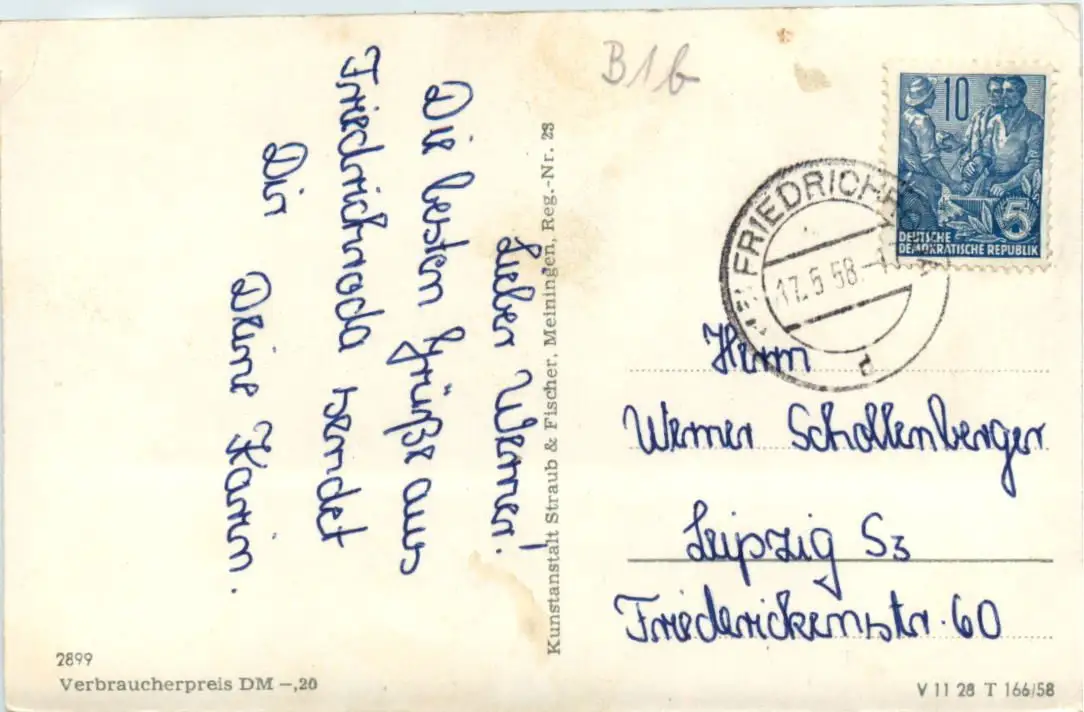 B1b
Lieber Werner!
Die besten Grüße aus
Friedrichroda sendet
Dir
Deine Karin.
Kunstanstalt Straub & Fischer, Meiningen, Reg.-Nr. 28
10
5
DEUTSCHE
DEMOKRATISCHE REPUBLIK
FRIEDRICHR
17.5 58.-1
d
Herrn
Werner Schollenberger
Leipzig S3
Friederickenstr. 60
2899
Verbraucherpreis DM –,20
V 11 28 T 166/58